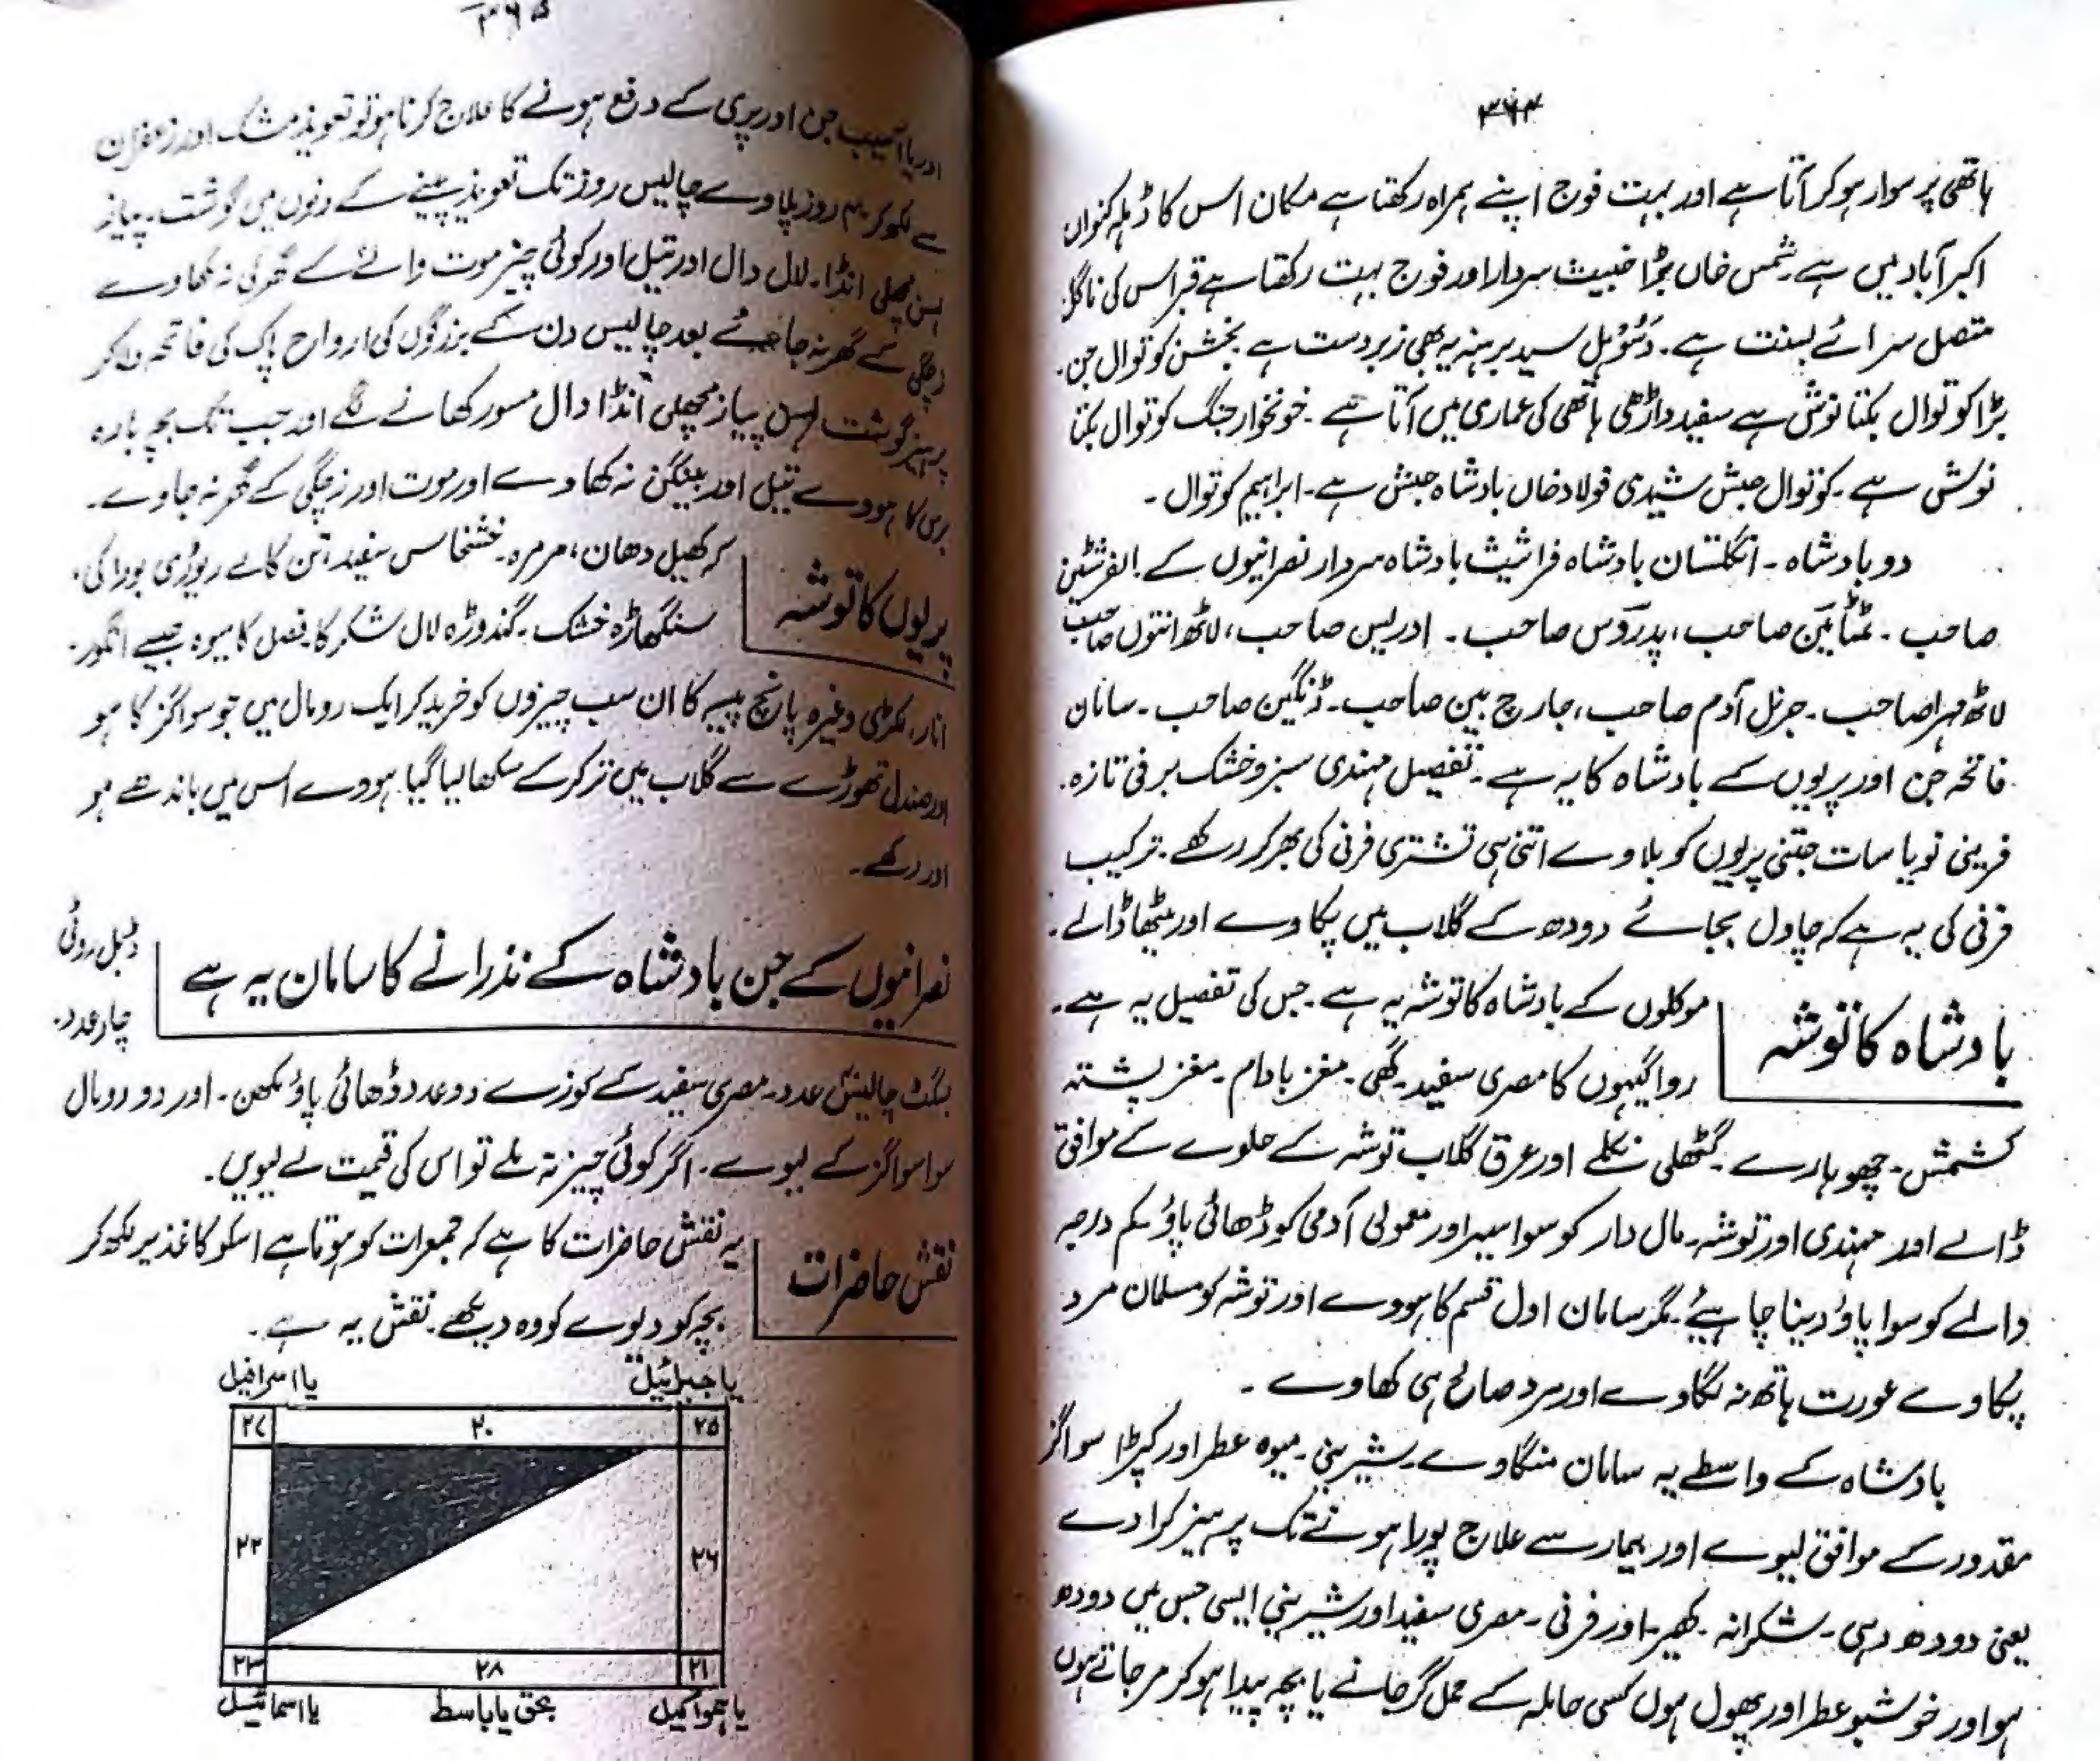 ۳۶۴
ہاتھی پر سوار ہوکر آتا ہے اور بہت فوج اپنے ہمراہ رکھتا ہے مکان اس کا ڈہلہ کنواں
اکبرآباد میں ہے۔ شمس خاں بڑا خبیث سردار اور فوج بہت رکھتا ہے قبر اس کی
متصل سرائے بسنت ہے۔ سید برہنہ یہ بھی زبردست ہے بخشن کوتوال جن۔
بڑا کوتوال بکتا نوش ہے سفید داڑھی ہاتھی کی عماری میں آتا ہے۔ خونخوار جنگ کوتوال بکتا
نوش ہے۔ کوتوال حبش شیدی فولاد خاں بادشاہ حبش ہے۔ ابراہیم کوتوال۔
دو بادشاہ۔ انگلستان بادشاہ فراشیث بادشاہ سردار نصرانیوں کے
صاحب۔ صاحب، پدروس صاحب۔ ادریس صاحب، لاٹھ انتوں صاحب
لاٹھ مہرا صاحب۔ جرنل آدم صاحب، جارج بین صاحب۔ ڈنگین صاحب۔ سامان
فاتحہ جن اور پریوں کے بادشاہ کا یہ ہے۔ تفصیل مہندی سبز و خشک برفی تازہ۔
فرینی نو یا سات جتنی پریوں کو بلاوے اتنی ہی تشتری فرنی کی بھر کر رکھے۔ ترکیب
فرنی کی یہ ہے کہ چاول بجائے دودھ کے گلاب میں پکاوے اور میٹھا ڈالے۔
بادشاہ کا توشہ
موکلوں کے بادشاہ کا توشہ یہ ہے۔ جس کی تفصیل یہ ہے۔
روا گیہوں کا مصری سفید۔ گھی۔ مغز بادام۔ مغز پستہ
کشمش۔ چھوہارے۔ گٹھلی نکلے اور عرق گلاب توشہ کے حلوے کے موافق
ڈالے اور مہندی اور توشہ۔ مال دار کو سوا سیر اور معمولی آدمی کو ڈھائی پاؤ کم درجہ
والے کو سوا پاؤ دینا چاہئیے۔ مگر سامان اول قسم کا ہووے اور توشہ کو مسلمان مرد
پکاوے عورت ہاتھ نہ لگاوے اور مرد صالح ہی کھاوے۔
بادشاہ کے واسطے یہ سامان منگاوے۔ شیرینی۔ میوہ عطر اور کپڑا سوا گز
مقدور کے موافق لیوے اور بیمار سے علاج پورا ہونے تک پرہیز کرا دے
یعنی دودھ دہی۔ شکرانہ۔ کھیر۔ اور فرنی۔ مصری سفید اور شیرینی ایسی جس میں دودھ
ہو اور خوشبو عطر اور پھول ہوں کسی حاملہ کے حمل گر جانے یا بچہ پیدا ہو کر مر جاتے ہوں
۳۶۵
اور یا آسیب جن اور پری کے دفع ہونے کا علاج کرنا ہو تو تعویذ مشک اور زعفران
سے لکھ کر ۴۰ روز پلاوے چالیس روز تک تعویذ پینے کے دنوں میں گوشت۔ پیاز
لہسن مچھلی انڈا۔ لال دال اور تیل اور کوئی چیز موت والے کے گھر کی نہ کھاوے
زچگی کے گھر نہ جائے بعد چالیس دن کے بزرگوں کی ارواح پاک کی فاتحہ دلا کر
پرہیز گوشت لہسن پیاز مچھلی انڈا دال مسور کھانے لگے اور جب تک بچہ بارہ
برس کا ہووے تیل اور بینگن نہ کھاوے اور موت اور زچگی کے گھر نہ جاوے۔
پریوں کا توشہ
کہ کھیل دھان، مرمرہ۔ خشخاس سفید، تن کالے ریوڑی بورا کی،
سنگھاڑہ خشک۔ گندوڑہ لال شکر کا فصل کا میوہ جیسے انگور۔
انار، ککڑی وغیرہ پانچ پیسہ کا ان سب چیزوں کو خرید کر ایک رومال میں جو سوا گز کا ہو
اور صندل تھوڑے سے گلاب میں تر کر کے سکھا لیا گیا ہووے اس میں باندھے ہو
اور رکھے۔
نصرانیوں کے جن بادشاہ کے نذرانے کا سامان یہ ہے
ڈبل روٹی
چار عدد۔
بسکٹ چالیس عدد۔ مصری سفید کے کوزے دو عدد ڈھائی پاؤ مکھن۔ اور دو رومال
سوا سوا گز کے لیوے۔ اگر کوئی چیز نہ ملے تو اس کی قیمت لے لیویں۔
نقش حاضرات
یہ نقش حاضرات کا ہے کہ جمعرات کو ہوتا ہے اسکو کاغذ پر لکھ کر
بچہ کو دیوے کو وہ دیکھے۔ نقش یہ ہے۔
یا جبرائیل یا اسرافیل
۲۵ ۲۰ ۲۷
۲۶ ۲۲
۲۱ ۲۸ ۲۳
یا ہمواکیل بحق یا باسط یا اسمائیل